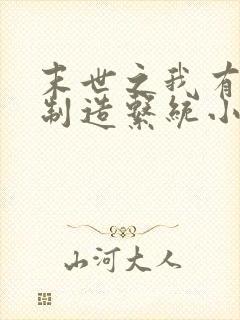 末世之我有
制造系统小
山河大人